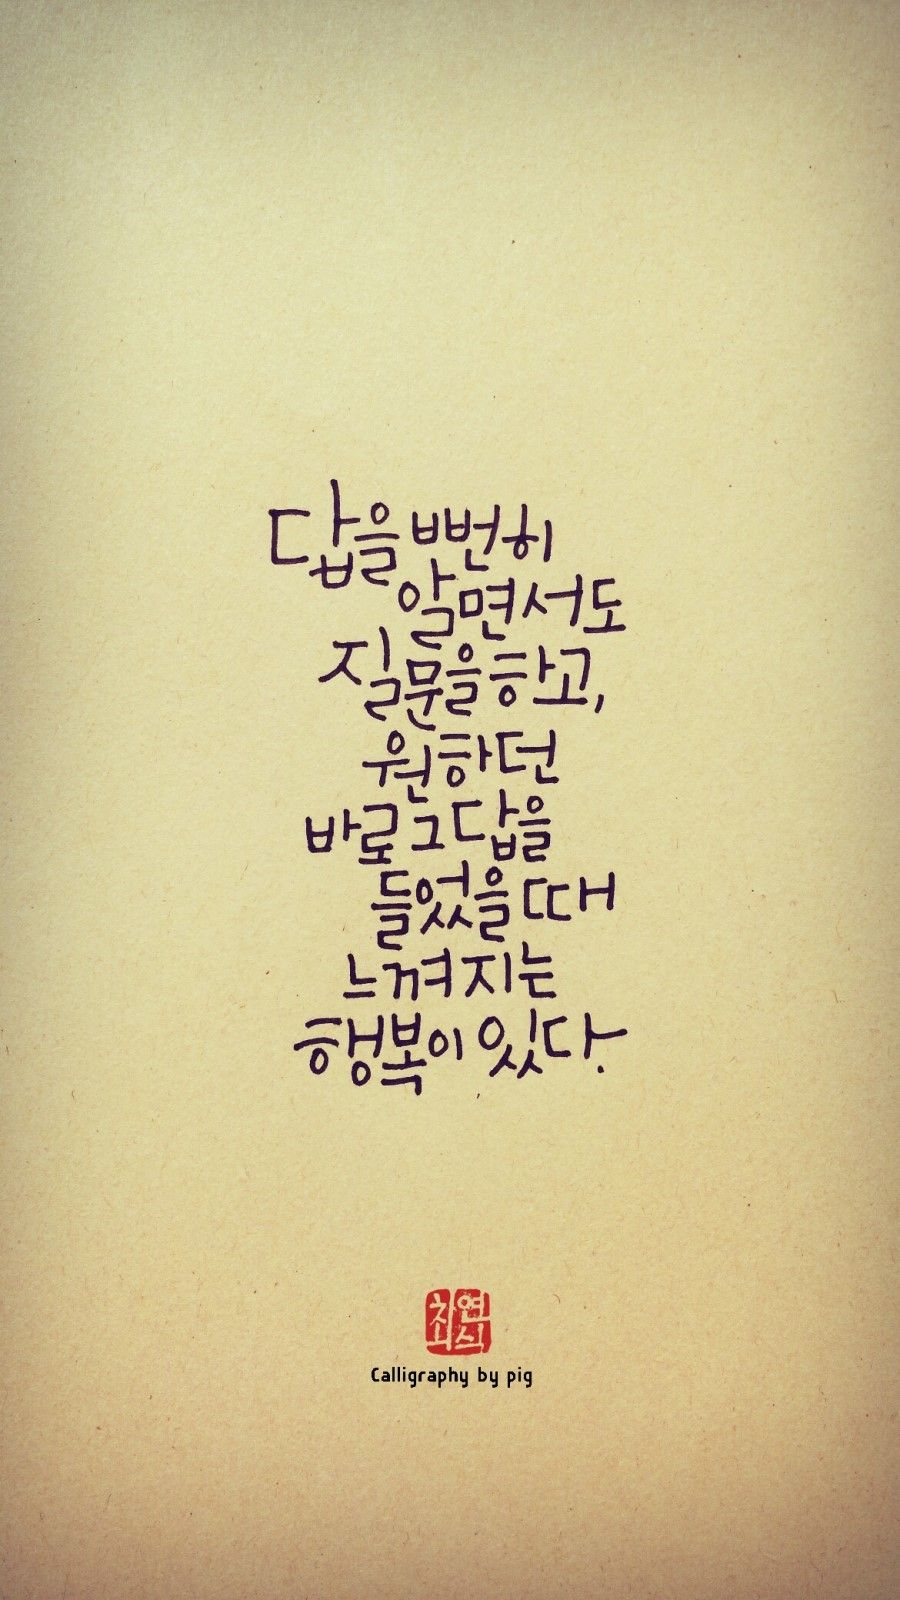 답을 뻔히
알면서도
질문을 하고,
원하던
바로 그 답을
들었을 때
느껴지는
행복이 있다.
최연식
Calligraphy by pig